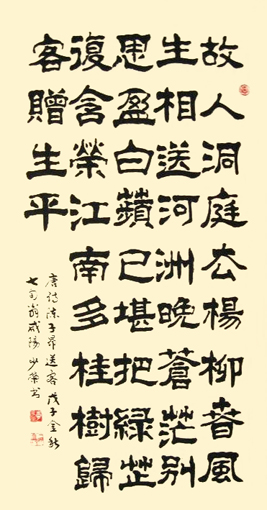 故人洞庭去楊柳春風
生相送河洲晚蒼茫别
思盈白蘋已堪把緑芷
復含榮江南多桂樹歸
客贈生平
唐詩陳子昂送客 戊子金秋
七旬翁咸陽少榮書